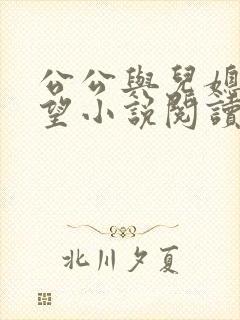 公公與兒媳
望小說閱讀
北川夕夏